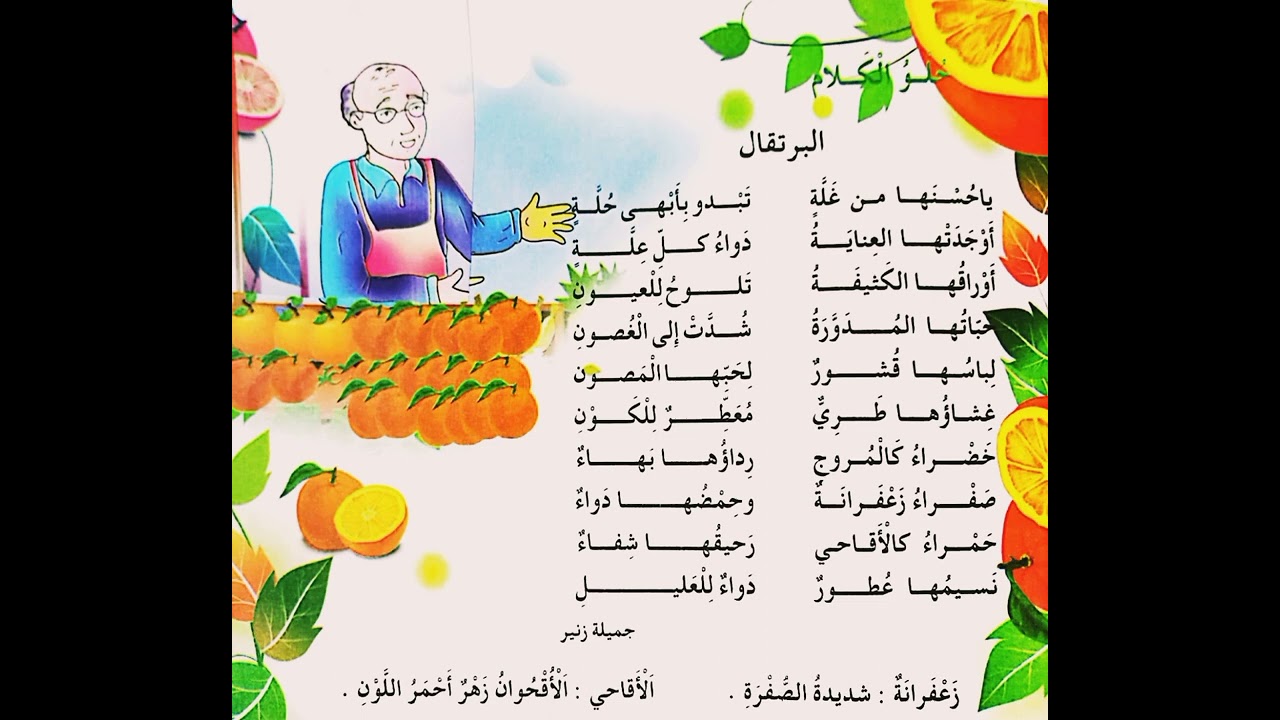 حُلْوُ الْكَلام
البرتقال
ياحُسْنَها من غَلَّةٍ تَبْدو بِأَبْهى حُلَّةٍ
أَوْجَدَتْها العِنايَةُ دَواءُ كلِّ عِلَّةٍ
أَوْراقُها الكَثيفَةُ تَلوحُ لِلْعيونِ
حَبّاتُها المُدَوَّرَةُ شُدَّتْ إِلى الْغُصونِ
لِباسُها قُشورٌ لِحَبِّها الْمَصونِ
غِشاؤُها طَرِيٌّ مُعَطِّرٌ لِلْكَوْنِ
خَضْراءُ كَالْمُروجِ رِداؤُها بَهاءٌ
صَفْراءُ زَعْفَرانَةٌ وحِمْضُها دَواءٌ
حَمْراءُ كالْأَقاحي رَحيقُها شِفاءٌ
نَسيمُها عُطورٌ دَواءٌ لِلْعَليلِ
جميلة زنير
زَعْفَرانَةٌ : شديدةُ الصُّفْرَةِ . اَلْأَقاحي : اَلْأُقْحُوانُ زَهْرٌ أَحْمَرُ اللَّوْنِ .